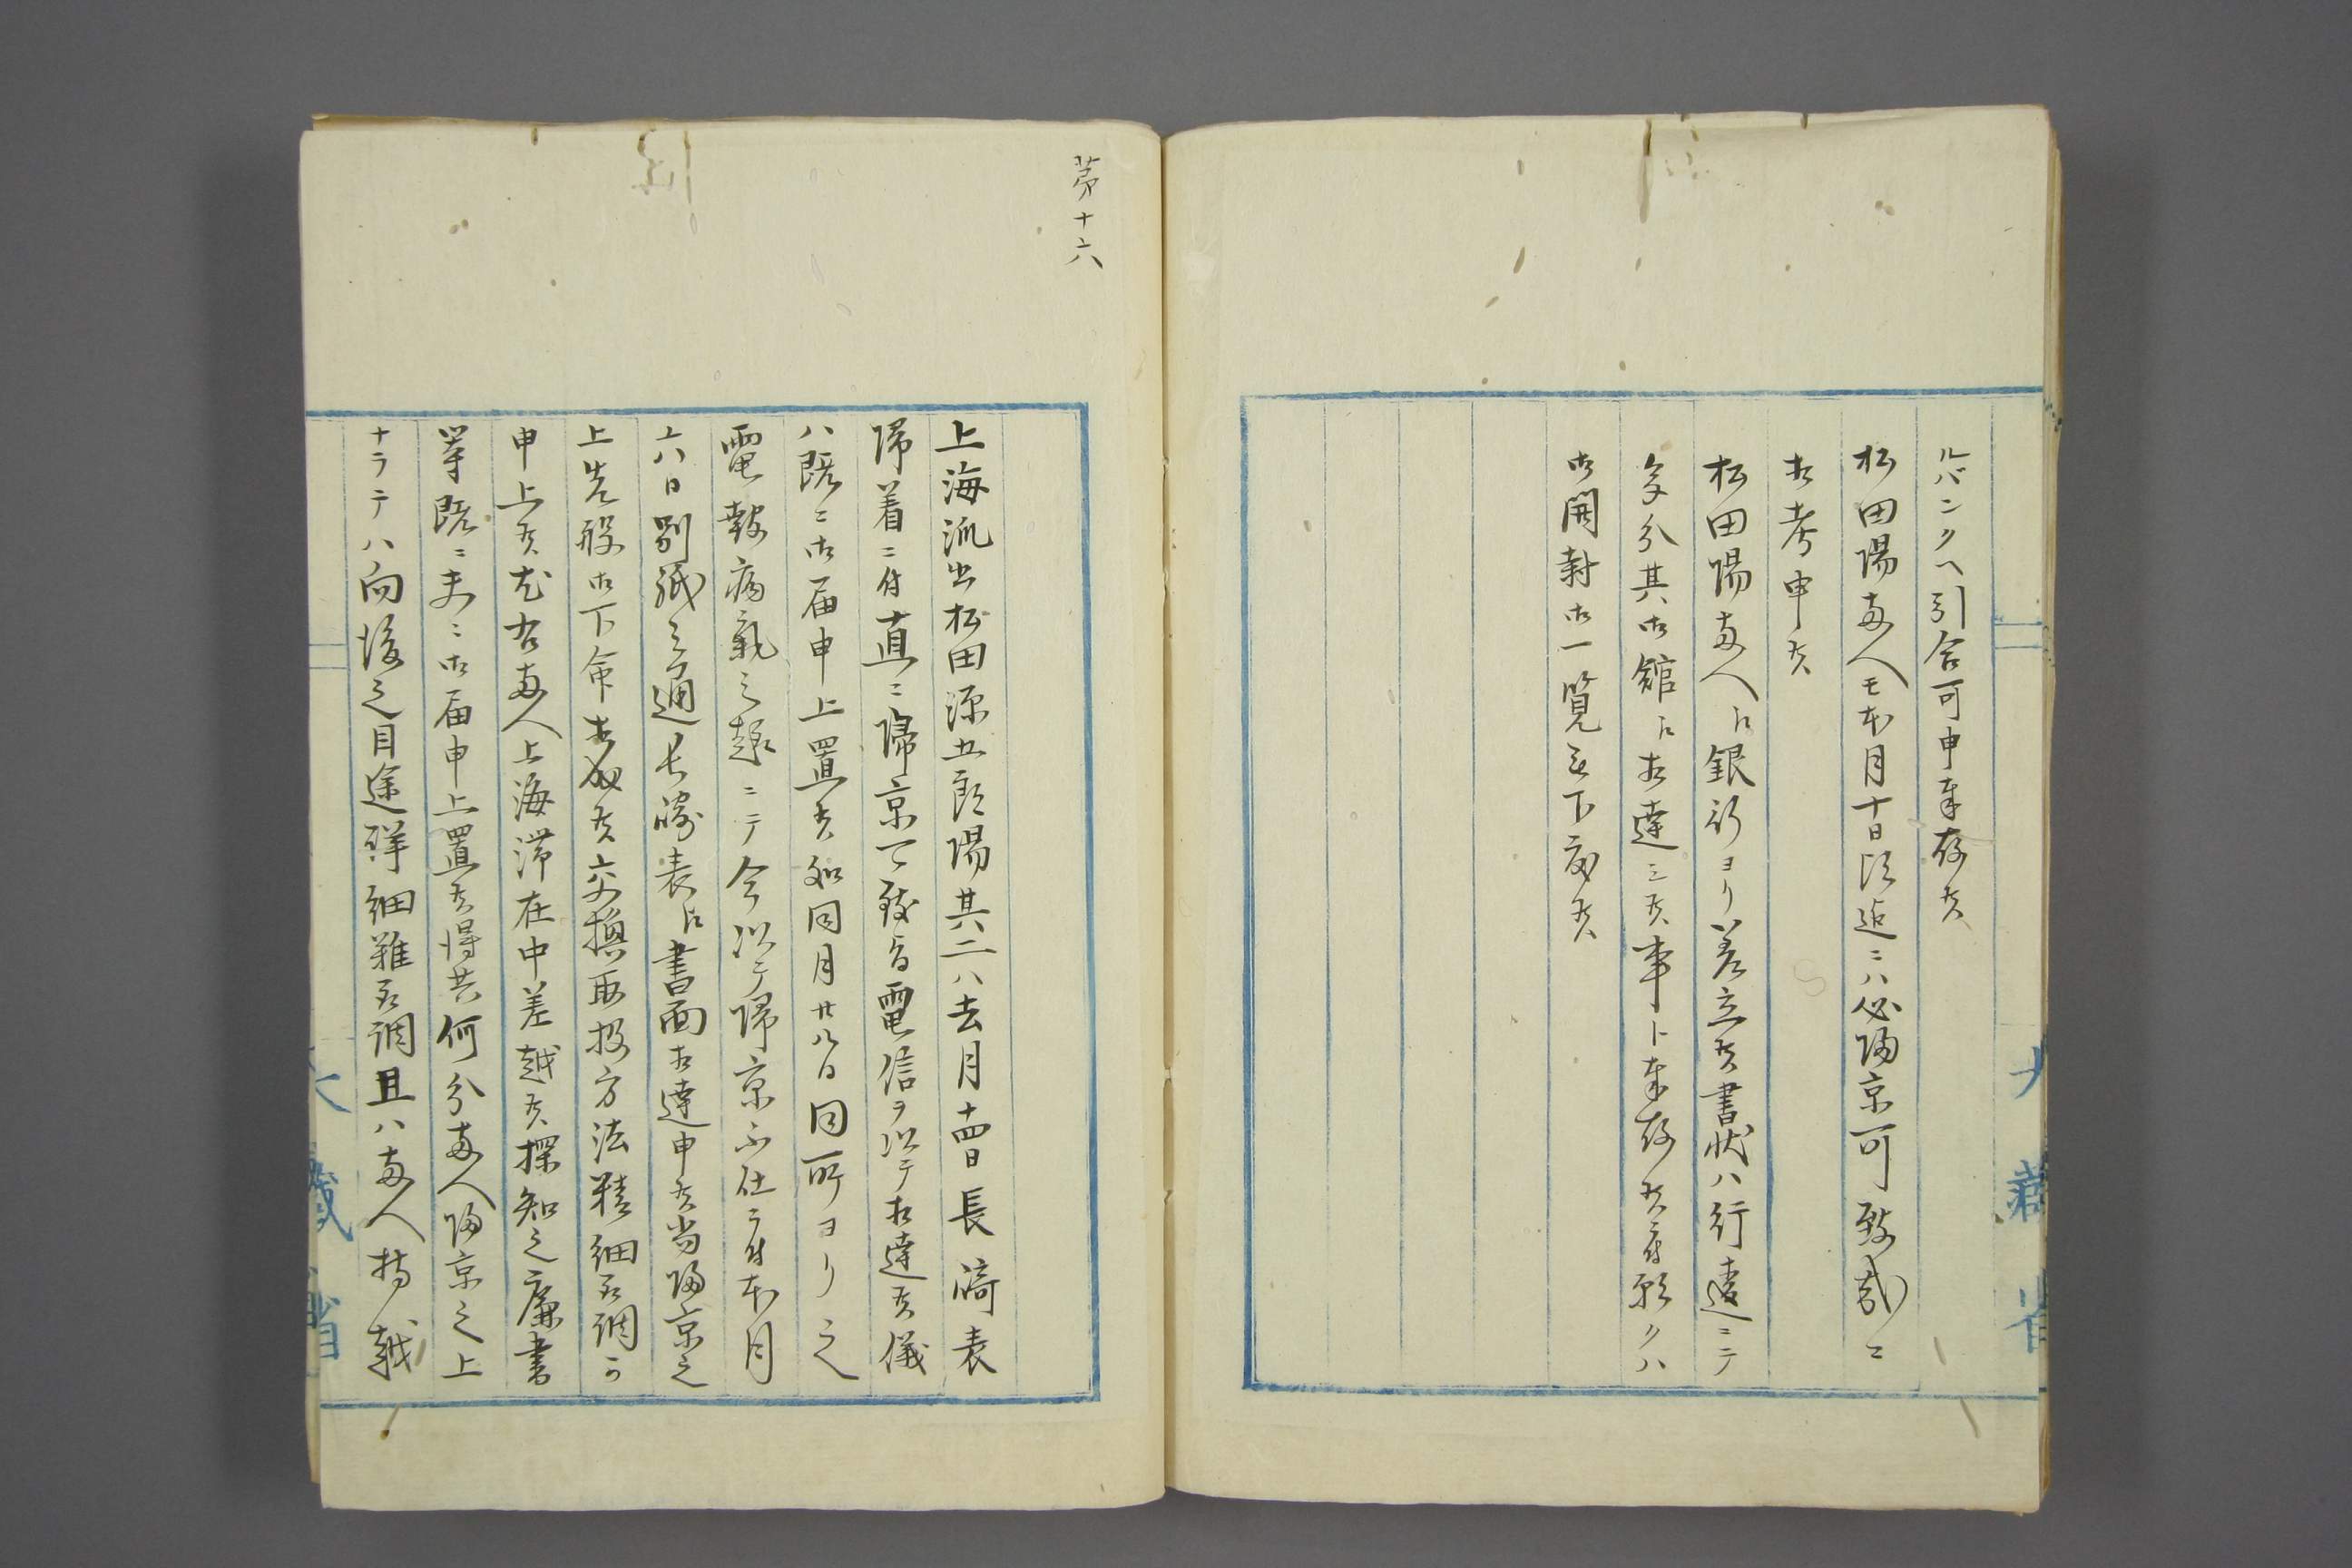 ルバンクヘ引合可申奉存候
松田陽両人モ本月十日頃迄ニハ必帰京可致哉ニ
相考申候
松田陽両人ヘ銀行ヨリ差立候書状ハ行違ニテ
多分其御館ヘ相達シ候事ト奉存候間願クハ
御開封御一覧被下度候
大蔵省
第十六
上海派出松田源五郎陽其二ハ去月十四日長崎表
帰着ニ付直ニ帰京可致旨電信ヲ以テ相達候儀
ハ既ニ御届申上置候処同月廿八日同所ヨリ之
電報病気之趣ニテ今以テ帰京不仕ニ付本月
六八日別紙之通長崎表ヘ書面相達申候尚帰京之
上先般御下命相成候交換取扱方法精細取調可
申上候尤右両人上海滞在中差越候探知之廉書
等既ニ夫々御届申上置候得共何分両人帰京之上
ナラテハ向後之目途詳細難取調且ハ両人持越
大蔵省